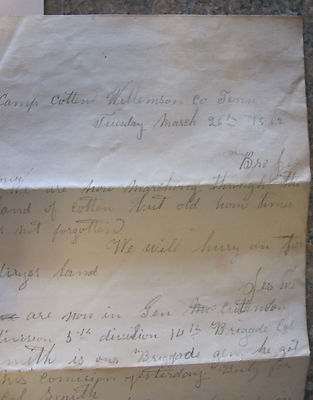 Camp Cotten Willemson Co Tenn
Tuesday March 26th 1862
"Bro
We are now marching through the
land of cotten but old hom times
is not forgotten
We will hurry on to
dixyes land
Yes we
are now in Gen McCritendon
division 5th division 14th Brigade Col
Smith is our "Briggade gen he got
his comision yesterday
Col Smith